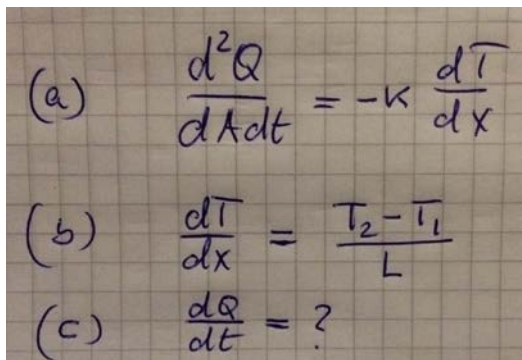 (a) d²Q/dAdt = -K dT/dx
(b) dT/dx = T₂-T₁/L
(c) dQ/dt = ?